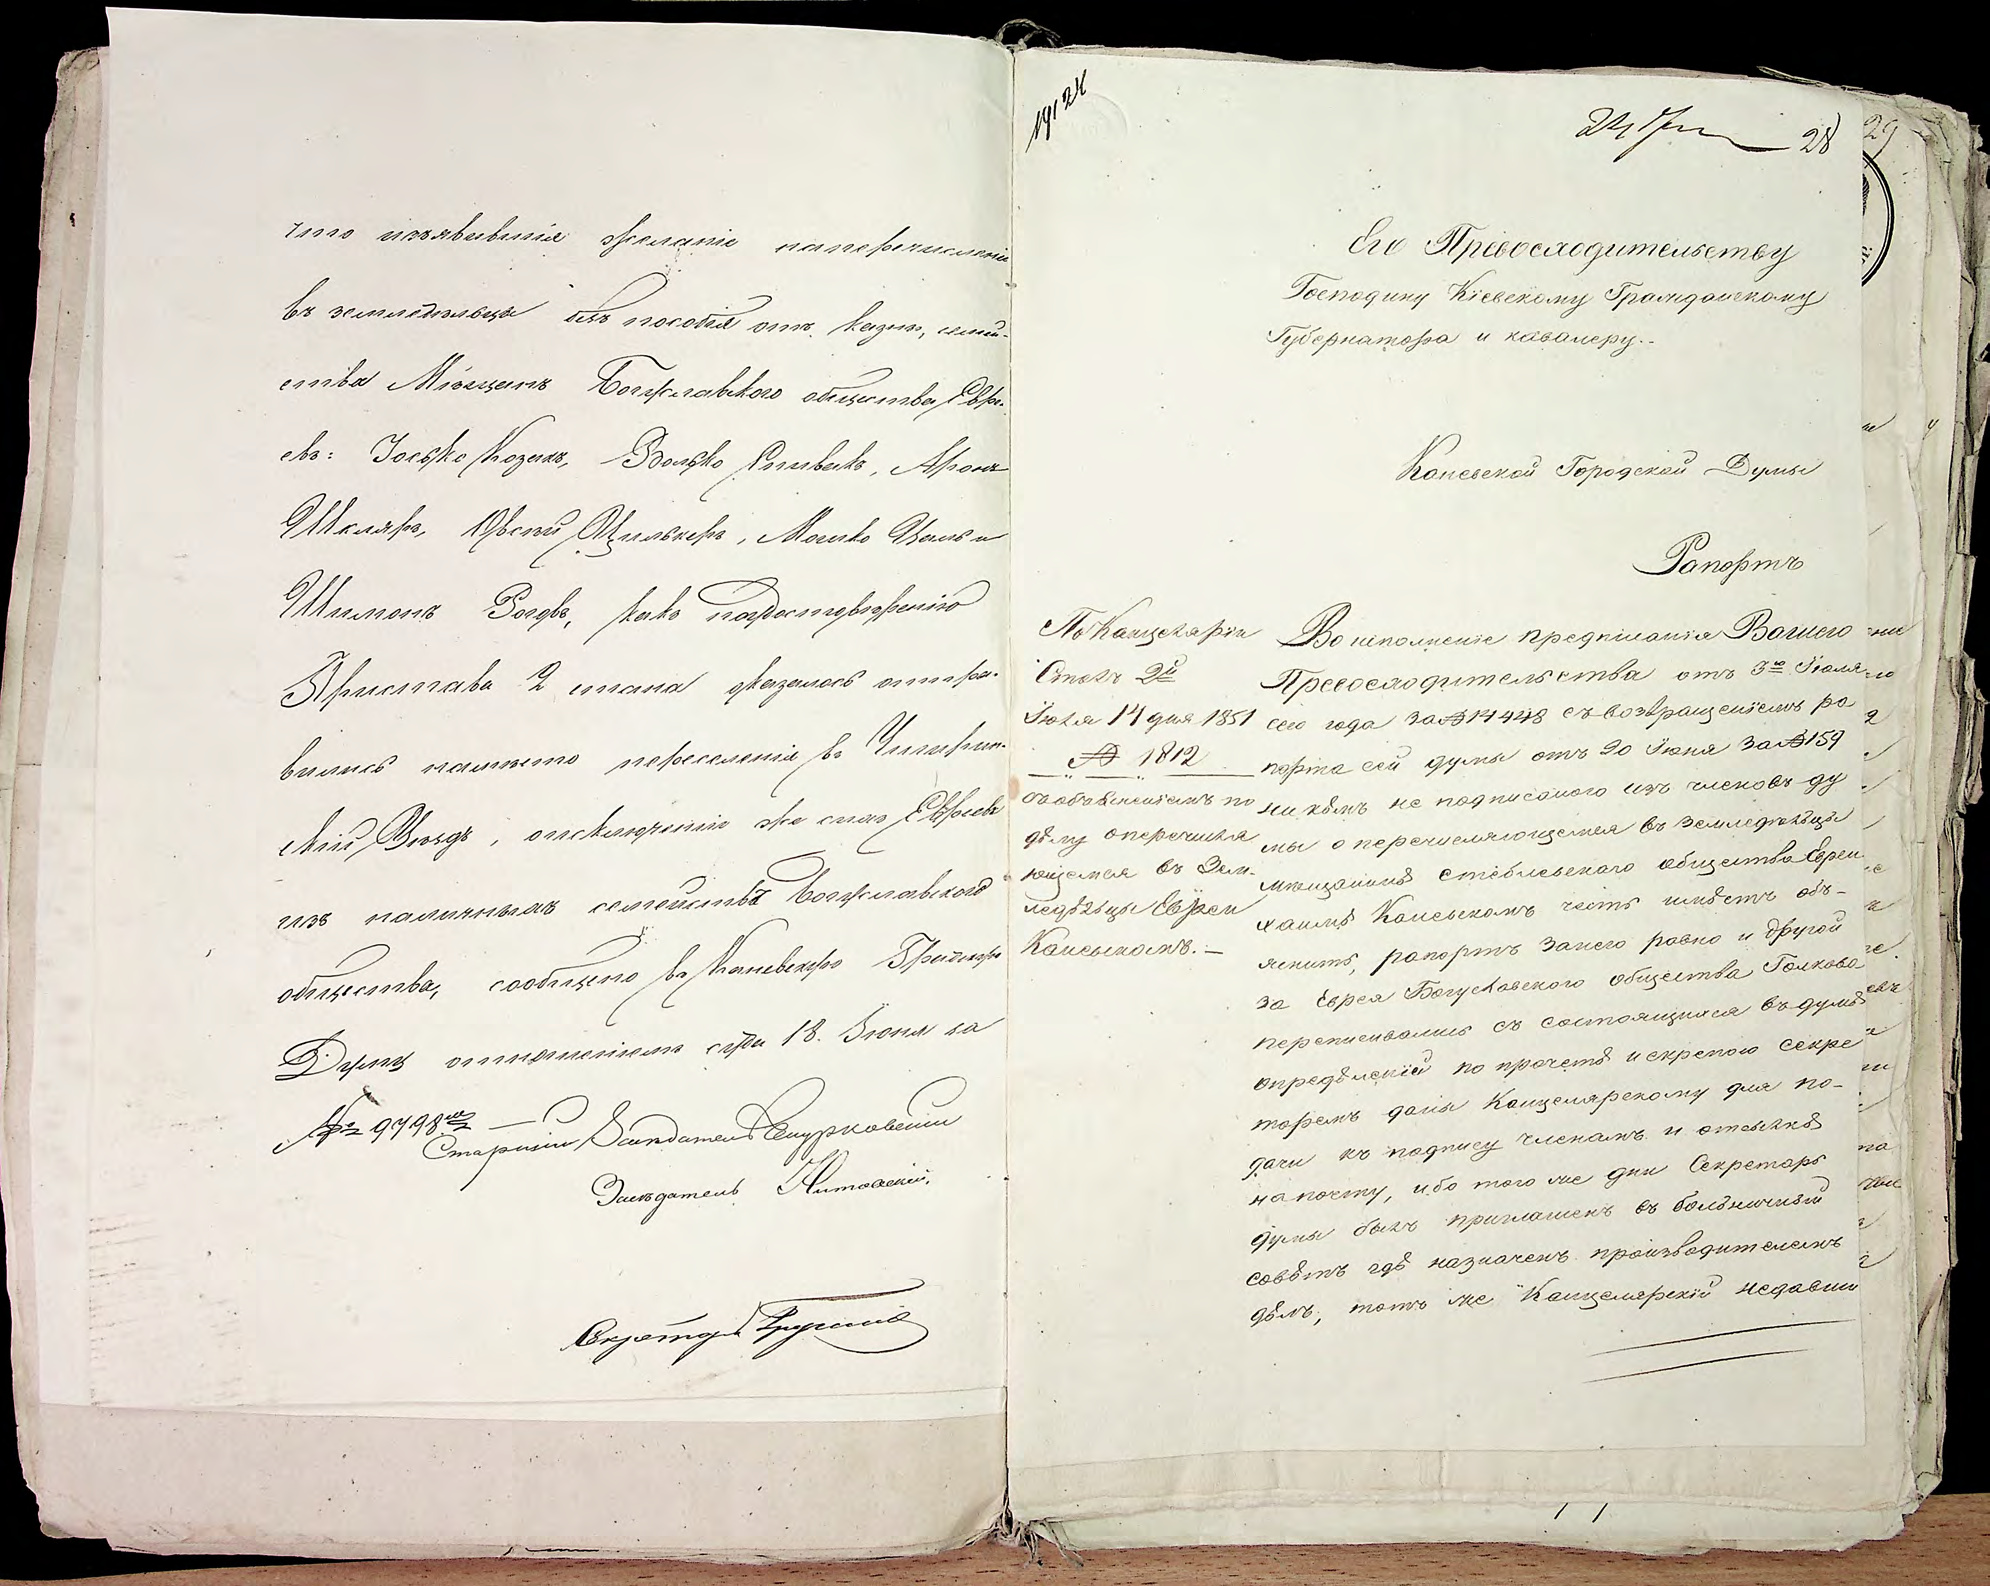 что изъявившія желаніе на перечисленіе
въ земледѣльцы безъ пособія отъ казны, семей-
ства Мѣщанъ Богуславскаго общества Евре-
евъ: Іосько Козакъ, Волько Спивакъ, Аронъ
Шкляръ, Мошко
Шимонъ какъ по удостовѣренію
Пристава 2 стана оказалось отпра-
вились на мѣсто переселенія въ Чигирин-
скій Уѣздъ, объ исключеніи же сихъ Евреевъ
изъ наличныхъ семействъ Богуславскаго
общества, сообщено въ Каневскую Градскую
Думу отношеніемъ суда 18. Іюня за
№ 9798мъ —
Старшій Засѣдатель
Засѣдатель
Секретарь
28
29
Его Превосходительству
Господину Кіевскому Гражданскому
Губернатора и кавалеру..
Каневской Городской Думы
Рапортъ
По Канцеляріи
Столъ 2й
Іюля 14 дня 1851
№ 1812
съ объясненіемъ по
дѣлу о перечисля
ющемся въ Зем-
ледѣльцы Евреи
Каневскомъ. —
Во исполненіе предписанія Вашего
Превосходительства отъ 3го Іюля
сего года за № 14448 съ возвращеніемъ ра
порта сей думы отъ 20 Іюня за № 159
ни кѣмъ не подписаного изъ членовъ ду
мы о перечисляющемся въ земледѣльцы
мѣщанинѣ Стеблевского общества Евреи
Хаимѣ Каневскомъ честь имѣетъ объ-
яснить, рапортъ за него равно и другой
за Еврея Богуславского общества Голкова
переписивались съ состоящихся въ думѣ
опредѣленій по прочетѣ и скрепою секре
таремъ даны Канцелярскому для по-
дачи къ подпису членамъ и отсылкѣ
на почту, ибо того же дни Секретарь
думы былъ приглашенъ въ больничный
совѣтъ гдѣ назначенъ производителемъ
дѣлъ, тотъ же Канцелярскій недавши